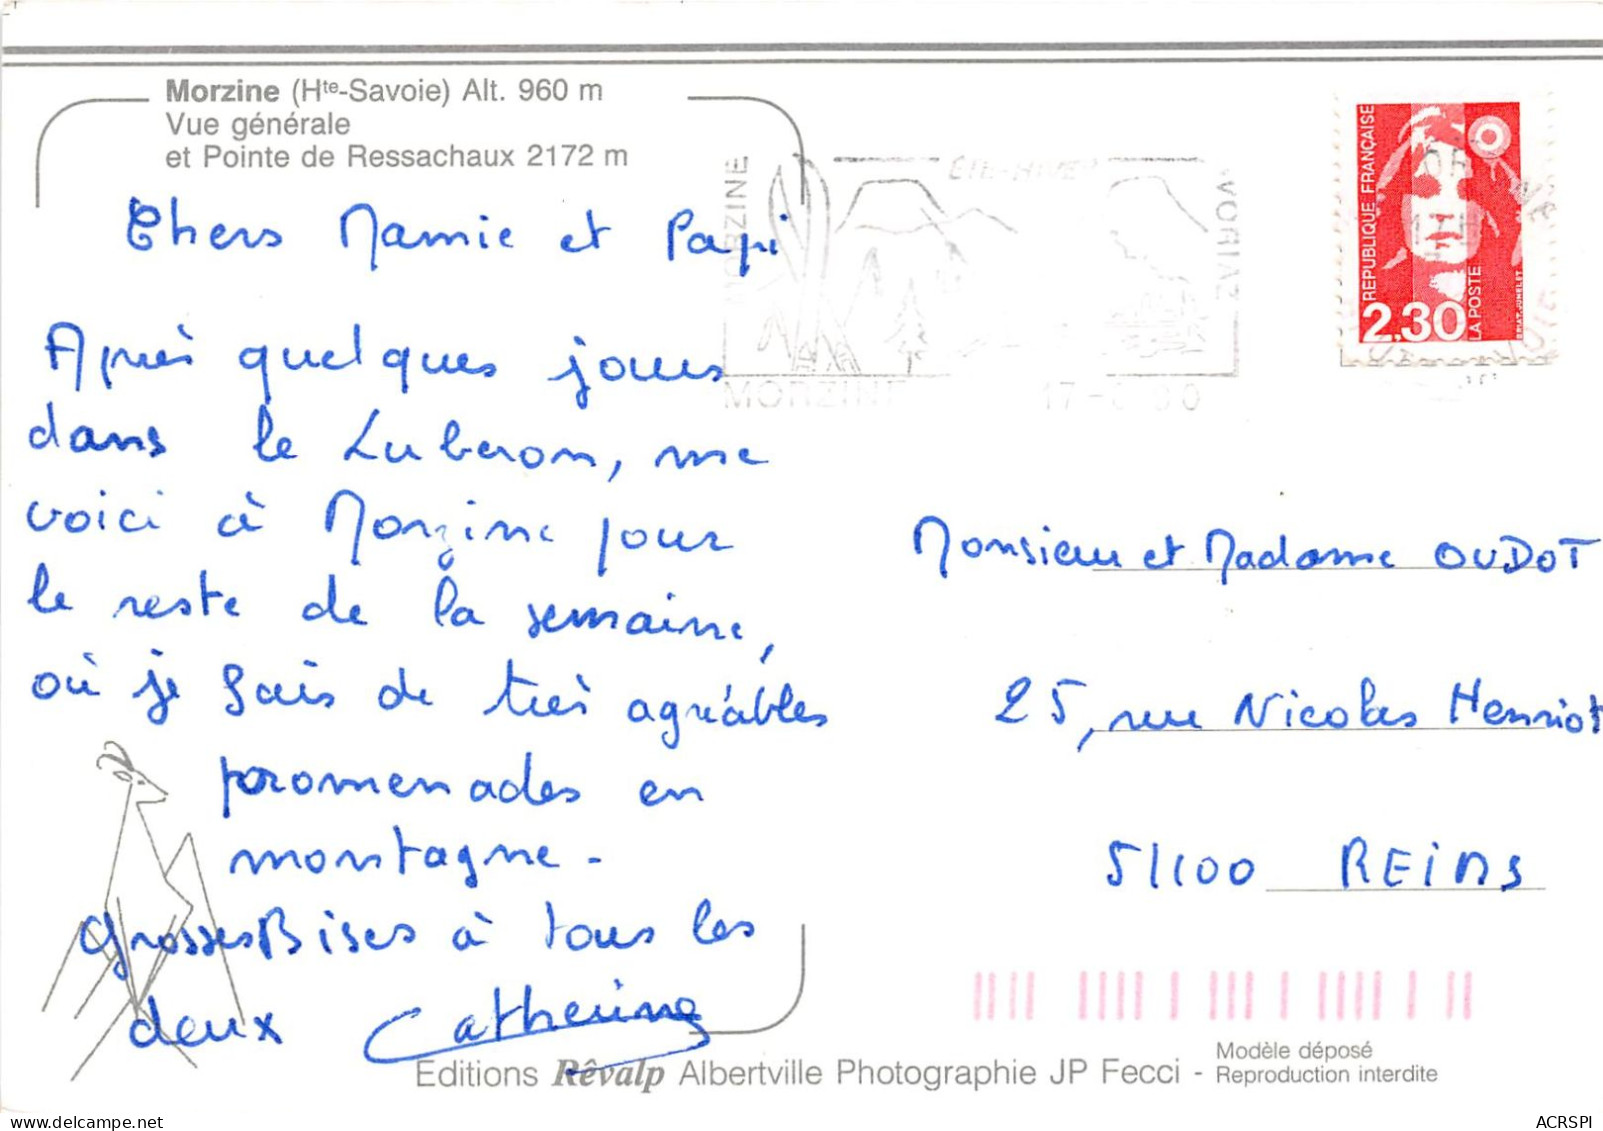 Morzine (Hte-Savoie) Alt. 960 m
Vue générale
et Pointe de Ressachaux 2172 m
Chers Mamie et Papi
Après quelques jours
dans le Luberon, me
voici à Morzine pour
le reste de la semaine,
où je fais de très agréables
promenades en
montagne -
Grosses Bises à tous les
deux Catherine
MORZINE
ETE-HIVER
AVORIAZ
MORZINE
RÉPUBLIQUE FRANÇAISE
2,30
LA POSTE
BRIAT-JUMELET
Monsieur et Madame OUDOT
25, rue Nicolas Henriot
51100 REIMS
Editions Rêvalp Albertville Photographie JP Fecci -
Modèle déposé
Reproduction interdite
ACRSPI